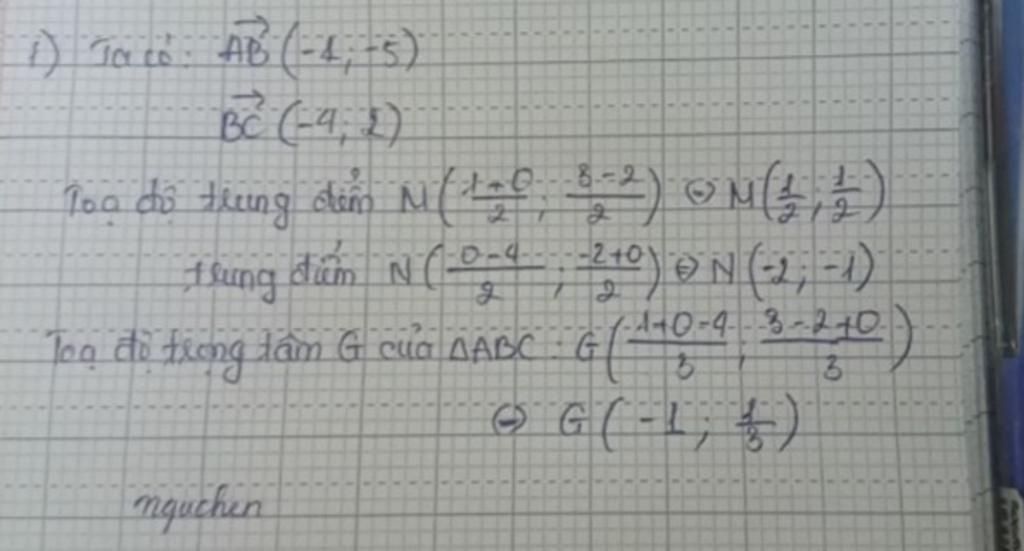 1) Ta có: \overrightarrow{AB} (-1; -5)
\overrightarrow{BC} (-4; 2)
Toạ độ trung điểm M(\frac{1+0}{2}; \frac{3-2}{2}) ⇔ M(\frac{1}{2}; \frac{1}{2})
trung điểm N(\frac{0-4}{2}; \frac{-2+0}{2}) ⇔ N(-2; -1)
Toạ độ trọng tâm G của ΔABC: G(\frac{1+0-4}{3}; \frac{3-2+0}{3})
⇔ G(-1; \frac{1}{3})
nguchen